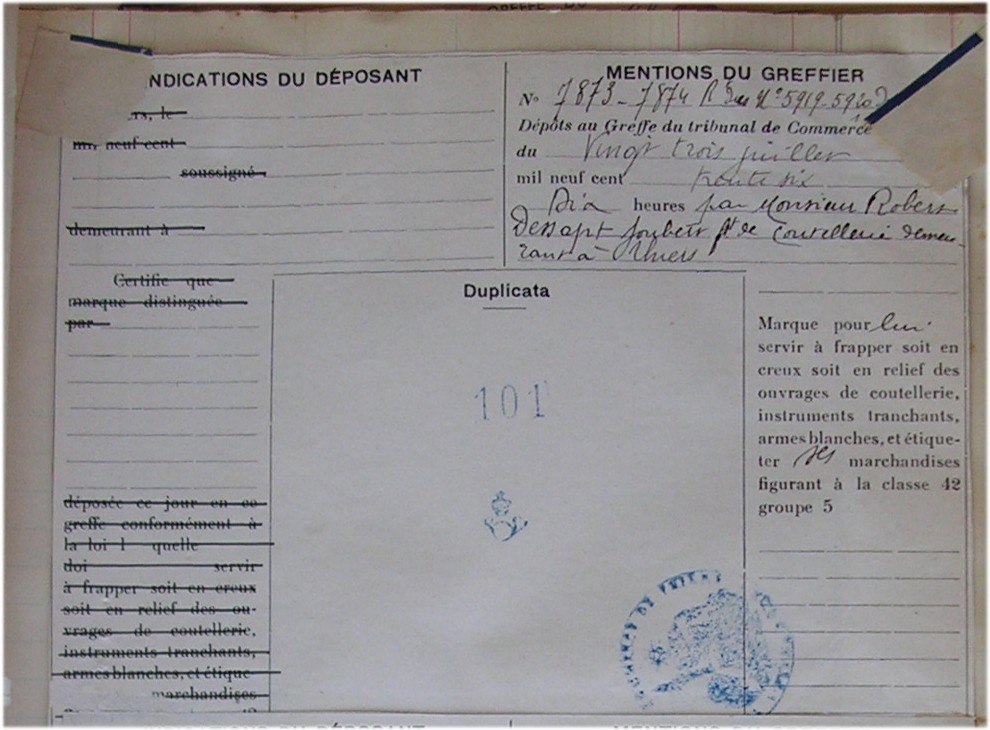 GREFFE DU
INDICATIONS DU DÉPOSANT
rs, le
mil neuf cent
soussigné
demeurant à
Certifie que
marque distinguée
par
déposée ce jour en ce
greffe conformément à
la loi l quelle
doi servir
à frapper soit en creux
soit en relief des ou-
vrages de coutellerie,
instruments tranchants,
armes blanches, et étique
marchandises
42
MENTIONS DU GREFFIER
No 7873-7874 Nos 5919-5920
Dépôts au Greffe du tribunal de Commerce
du Vingt trois juillet
mil neuf cent trente six
Dix heures par Monsieur Robert
Dessapt Joubert ft de Coutellerie demeu-
rant à Thiers
Duplicata
101
Marque pour lui
servir à frapper soit en
creux soit en relief des
ouvrages de coutellerie,
instruments tranchants,
armes blanches, et étique-
ter ses marchandises
figurant à la classe 42
groupe 5
INDICATIONS DU DÉPOSANT
MENTIONS DU